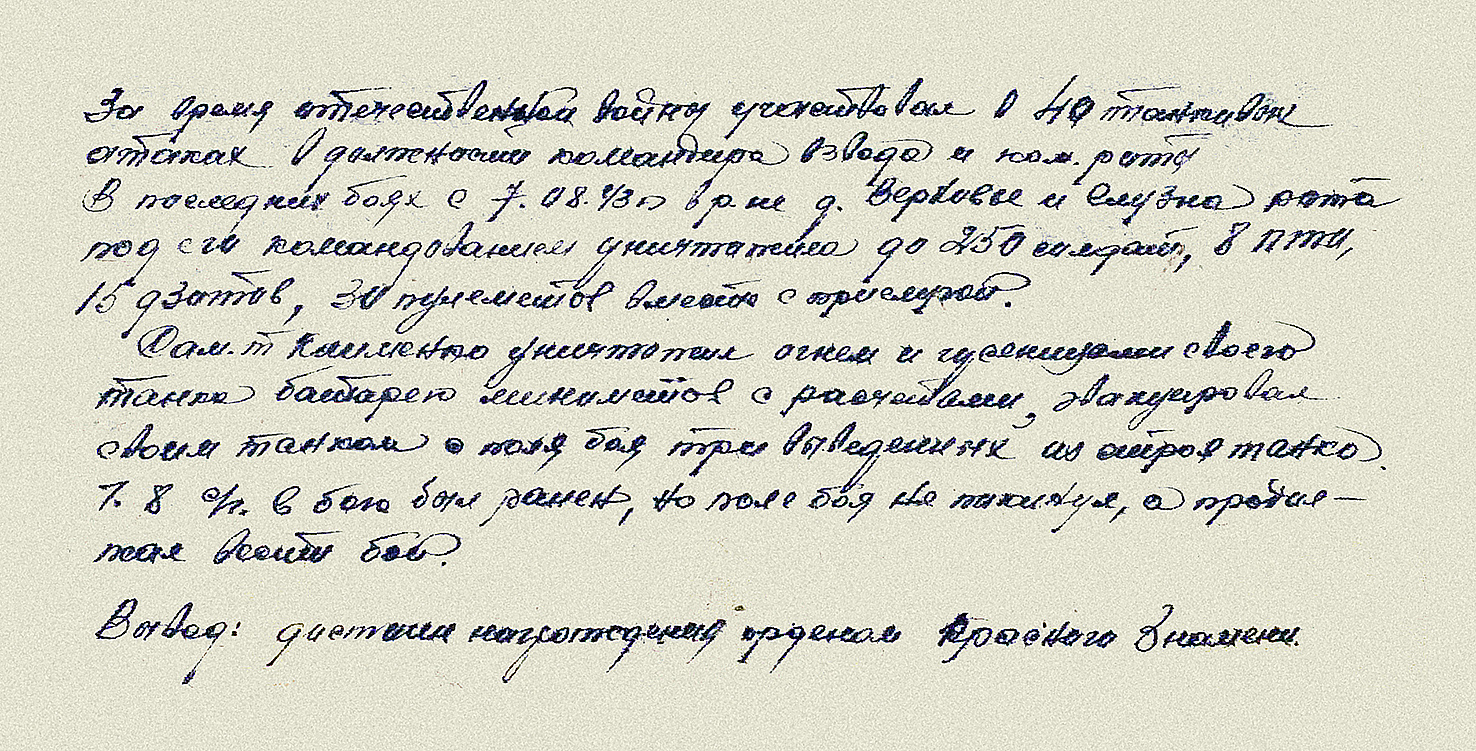 За время отечественной войны участвовал в 40 танковых
атаках в должности командира взвода и ком. роты
В последних боях с 7.08.43 г в р-не д. Верховье и Слузна рота
под его командованием уничтожила до 250 солдат, 8 ПТО,
15 дзотов, 30 пулеметов вместе с прислугой.
Сам. т Клименко уничтожил огнем и гусеницами своего
танка батарею минометов с расчетами, эвакуировал
своим танком с поля боя три выведенных из строя танка.
7.8 с/г. в бою был ранен, но поле боя не покинул, а продол-
жал вести бой.
Вывод: достоин награждения орденом Красного Знамени.